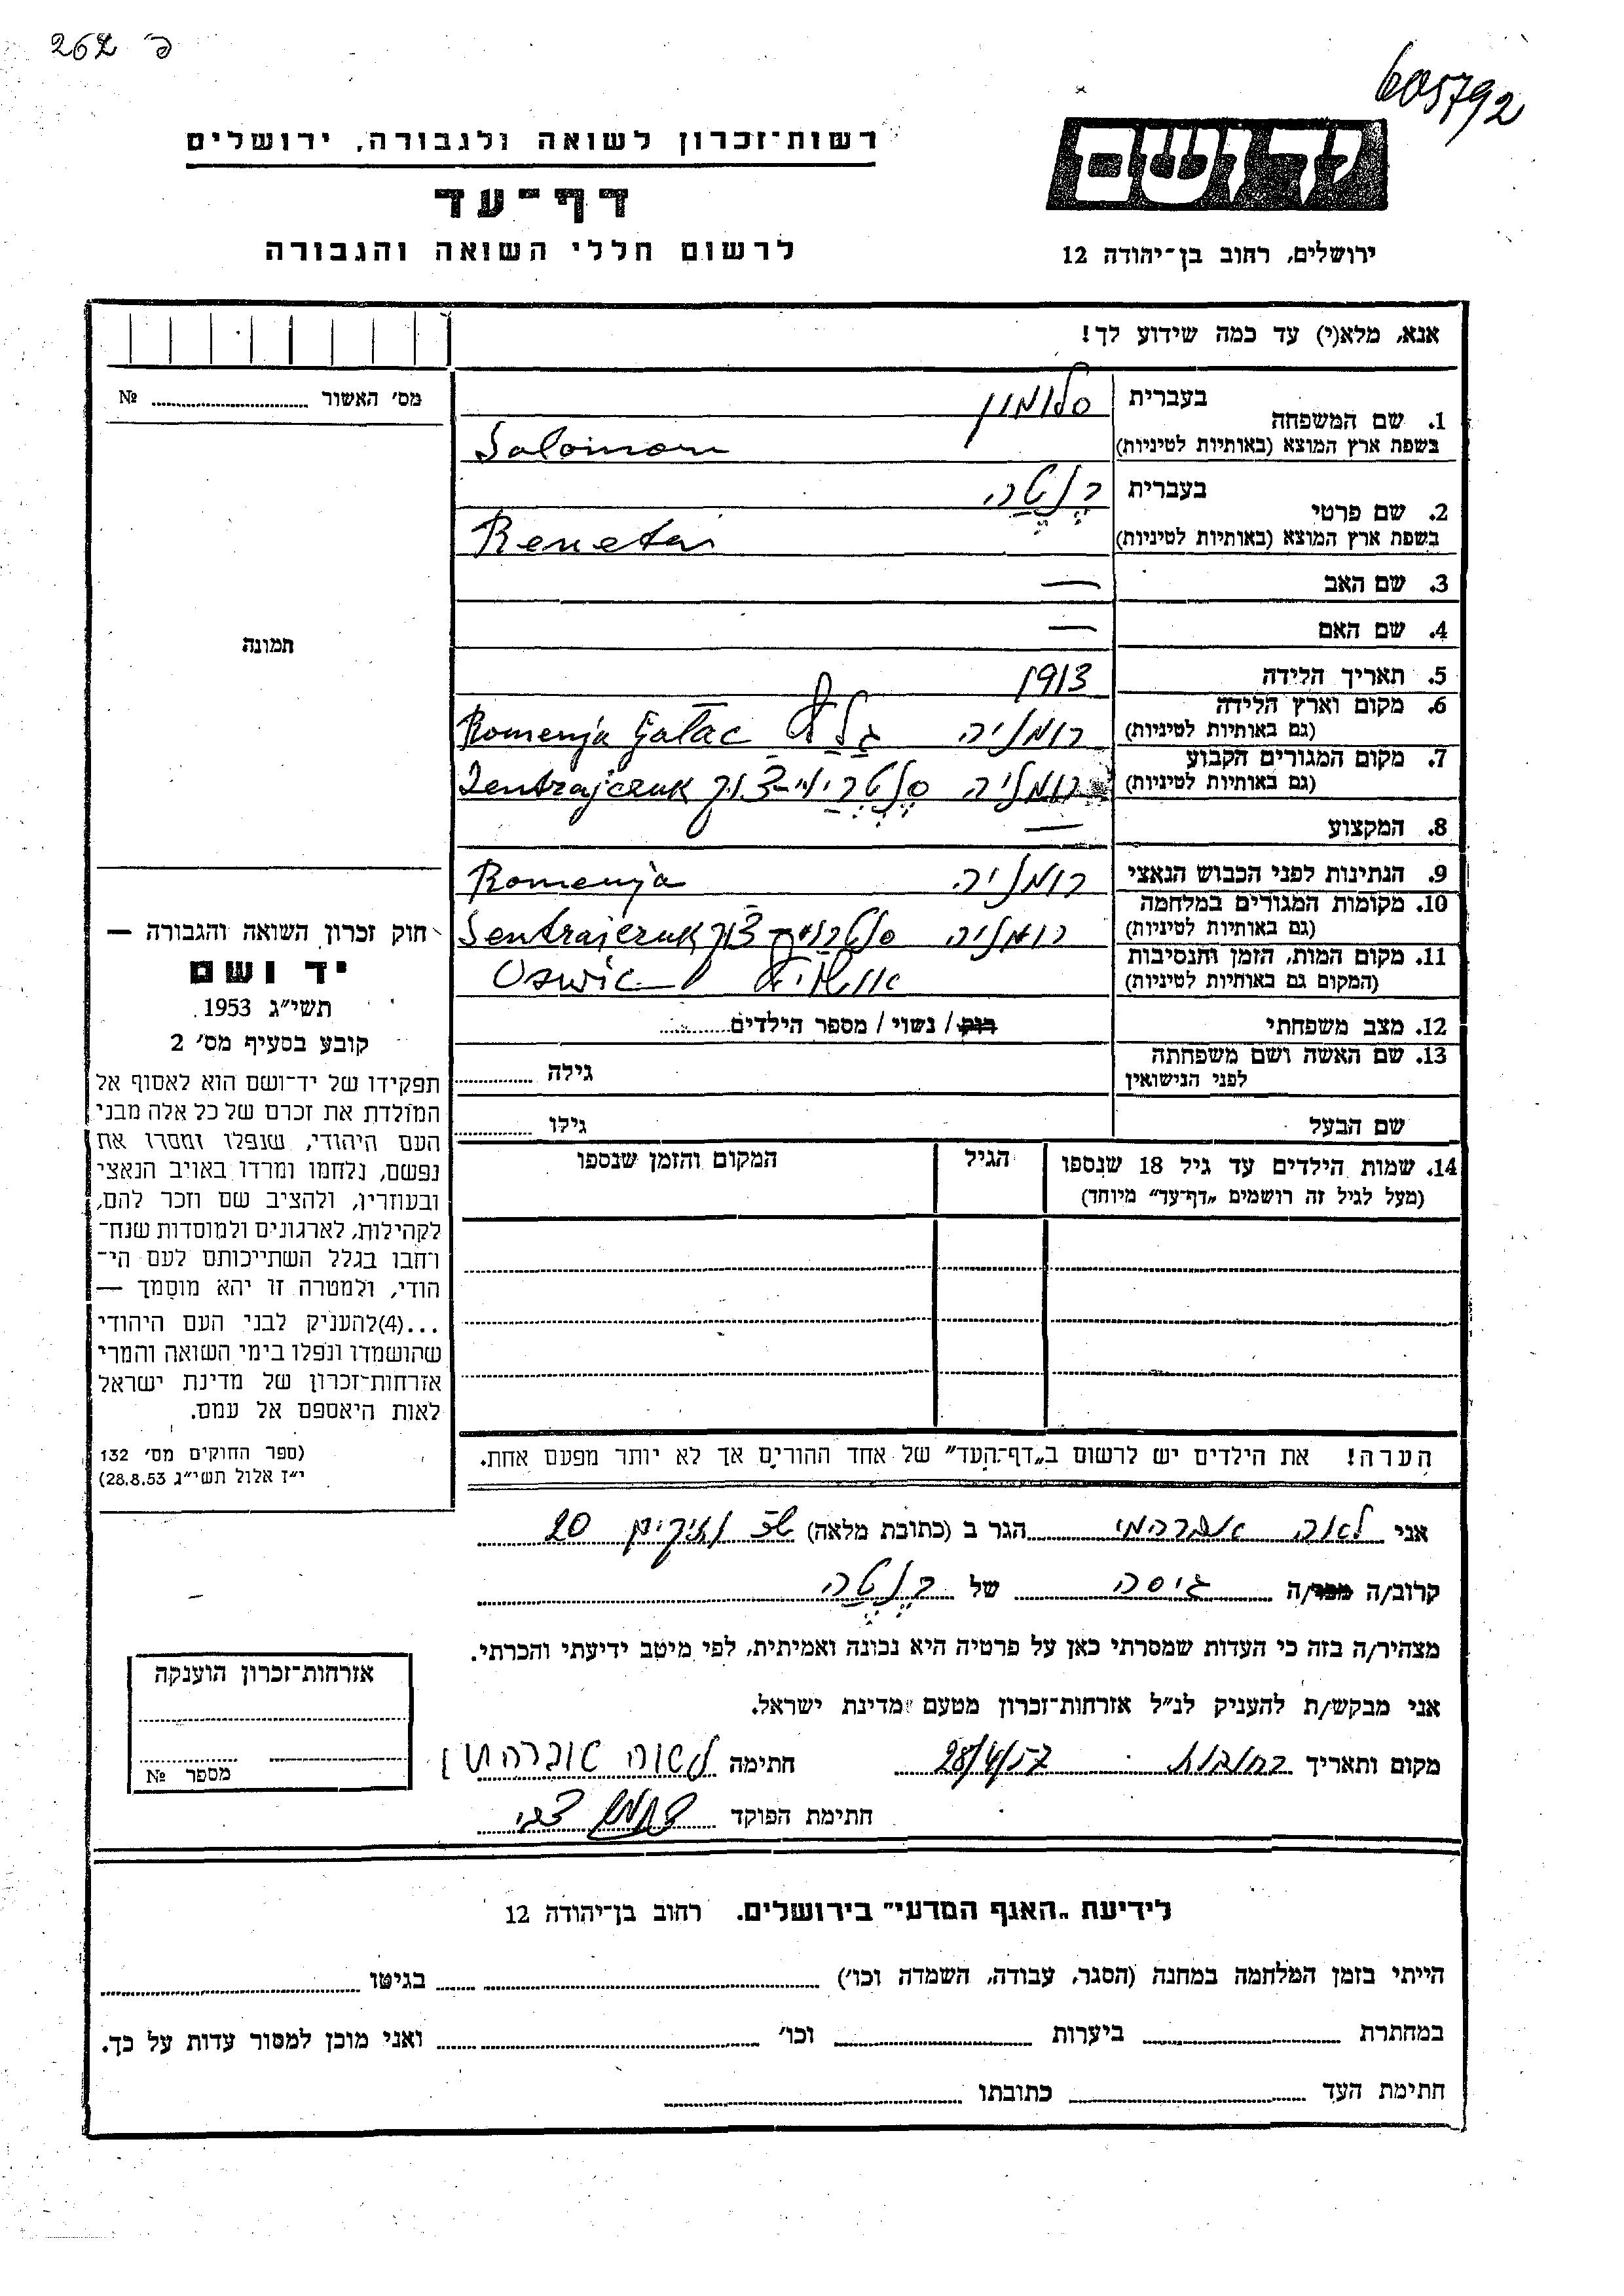 262 פ
605792
יד ושם
רשות־זכרון לשואה ולגבורה, ירושלים
דף־עד
לרשום חללי השואה והגבורה
ירושלים, רחוב בן־יהודה 12
אנא, מלא(י) עד כמה שידוע לך!
מס' האשור № ........
תמונה
1. שם המשפחה
בעברית סלומון
בשפת ארץ המוצא (באותיות לטיניות) Salomon
2. שם פרטי
בעברית רֶנֶטָה
בשפת ארץ המוצא (באותיות לטיניות) Reneta
3. שם האב —
4. שם האם —
5. תאריך הלידה 1913
6. מקום וארץ הלידה
(גם באותיות לטיניות) רומניה גלץ Romenja Galac
7. מקום המגורים הקבוע
(גם באותיות לטיניות) רומניה
8. המקצוע —
9. הנתינות לפני הכבוש הנאצי רומניה Romenja
10. מקומות המגורים במלחמה
(גם באותיות לטיניות) רומניה Sentrajczuk
11. מקום המות, הזמן והנסיבות
(המקום גם באותיות לטיניות) Oswic
12. מצב משפחתי רוק / נשוי / מספר הילדים........
13. שם האשה ושם משפחתה
לפני הנישואין גילה ........
שם הבעל גילו ........
14. שמות הילדים עד גיל 18 שנספו
(מעל לגיל זה רושמים „דף־עד” מיוחד)
הגיל
המקום והזמן שנספו
הערה! את הילדים יש לרשום ב„דף־העד” של אחד ההורים אך לא יותר מפעם אחת.
חוק זכרון השואה והגבורה —
יד ושם
תשי״ג 1953
קובע בסעיף מס' 2
תפקידו של יד־ושם הוא לאסוף אל
המולדת את זכרם של כל אלה מבני
העם היהודי, שנפלו ומסרו את
נפשם, נלחמו ומרדו באויב הנאצי
ובעוזריו, ולהציב שם וזכר להם,
לקהילות, לארגונים ולמוסדות שנח־
רחבו בגלל השתייכותם לעם הי־
הודי, ולמטרה זו יהא מוסמך —
...(4) להעניק לבני העם היהודי
שהושמדו ונפלו בימי השואה והמרי
אזרחות־זכרון של מדינת ישראל
לאות היאספם אל עמם.
(ספר החוקים מס' 132
י״ז אלול תשי״ג 28.8.53)
אני לאה אברהמי הגר ב (כתובת מלאה) 20
קרוב/ה מכר/ה גיסה של רֶנֶטָה
מצהיר/ה בזה כי העדות שמסרתי כאן על פרטיה היא נכונה ואמיתית, לפי מיטב ידיעתי והכרתי.
אני מבקש/ת להעניק לנ״ל אזרחות־זכרון מטעם מדינת ישראל.
מקום ותאריך רחובות 28/4/57 חתימה לאה אברהמי
חתימת הפוקד
אזרחות־זכרון הוענקה
מספר №
לידיעת „האגף המדעי” בירושלים. רחוב בן־יהודה 12
הייתי בזמן המלחמה במחנה (הסגר, עבודה, השמדה וכו') ........ בגיטו ........
במחתרת ........ ביערות ........ וכו' ........ ואני מוכן למסור עדות על כך.
חתימת העד ........ כתובתו ........